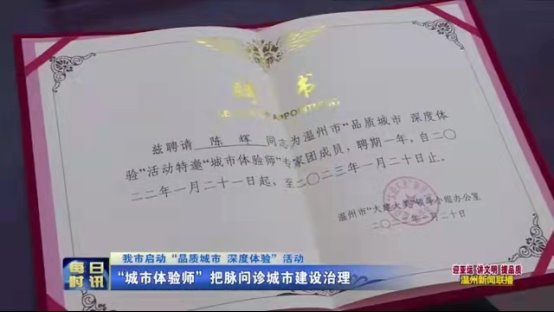 聘书
兹聘请 陈辉 同志为温州市“品质城市 深度体
验”活动特邀“城市体验师”专家团成员，聘期一年，自二〇
二二年一月二十一日起，至二〇二三年一月二十日止。
温州市“大建大美”
小组办公室
月二十日
每日
时讯
我市启动“品质城市 深度体验”活动
“城市体验师”把脉问诊城市建设治理
迎亚运 讲文明 提品质
温州新闻联播